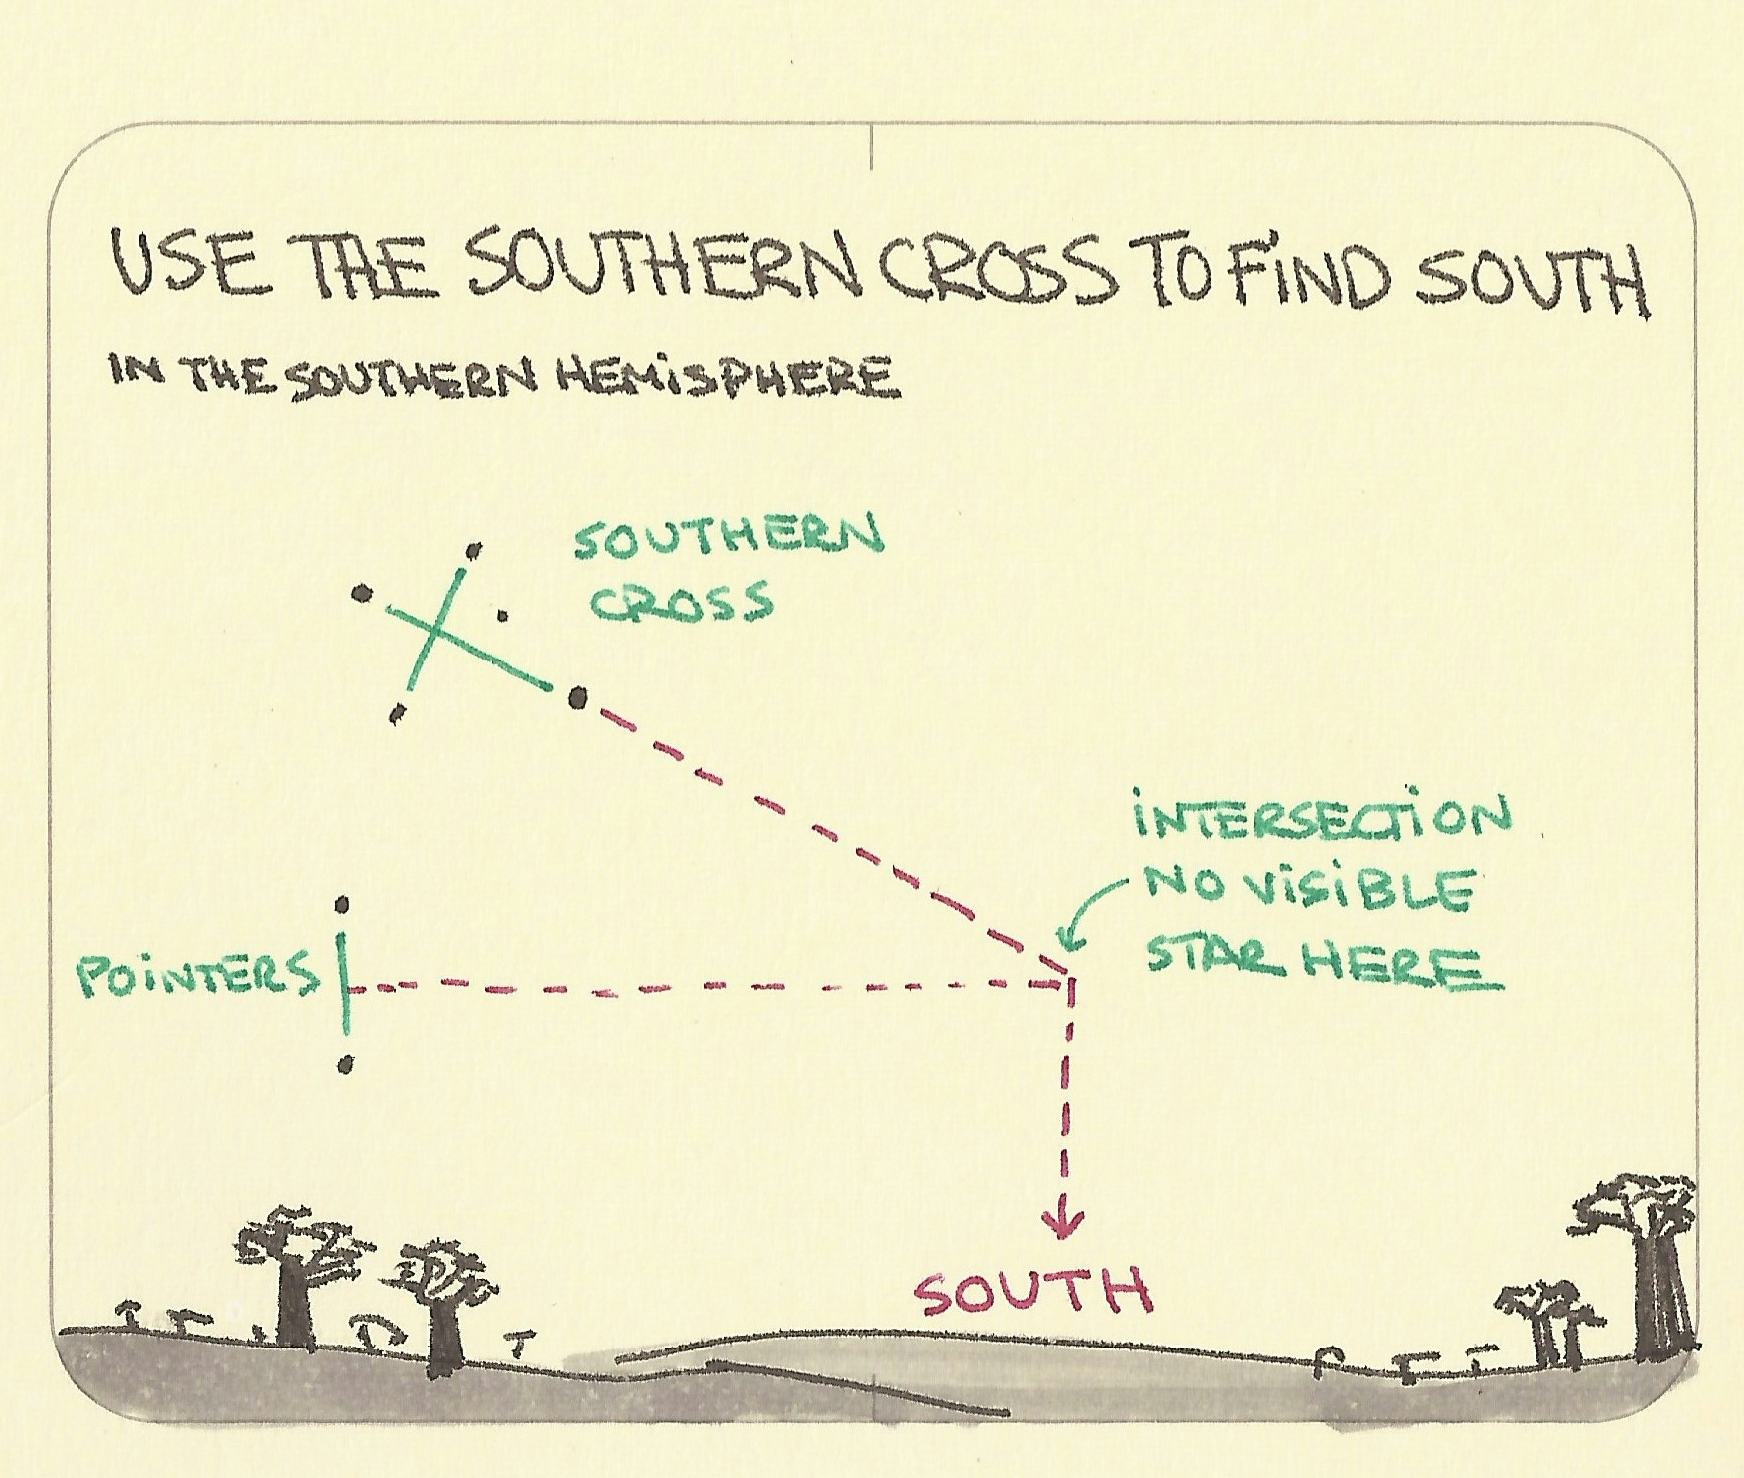 USE THE SOUTHERN CROSS TO FIND SOUTH
IN THE SOUTHERN HEMISPHERE
SOUTHERN
CROSS
INTERSECTION
NO VISIBLE
STAR HERE
POINTERS
SOUTH